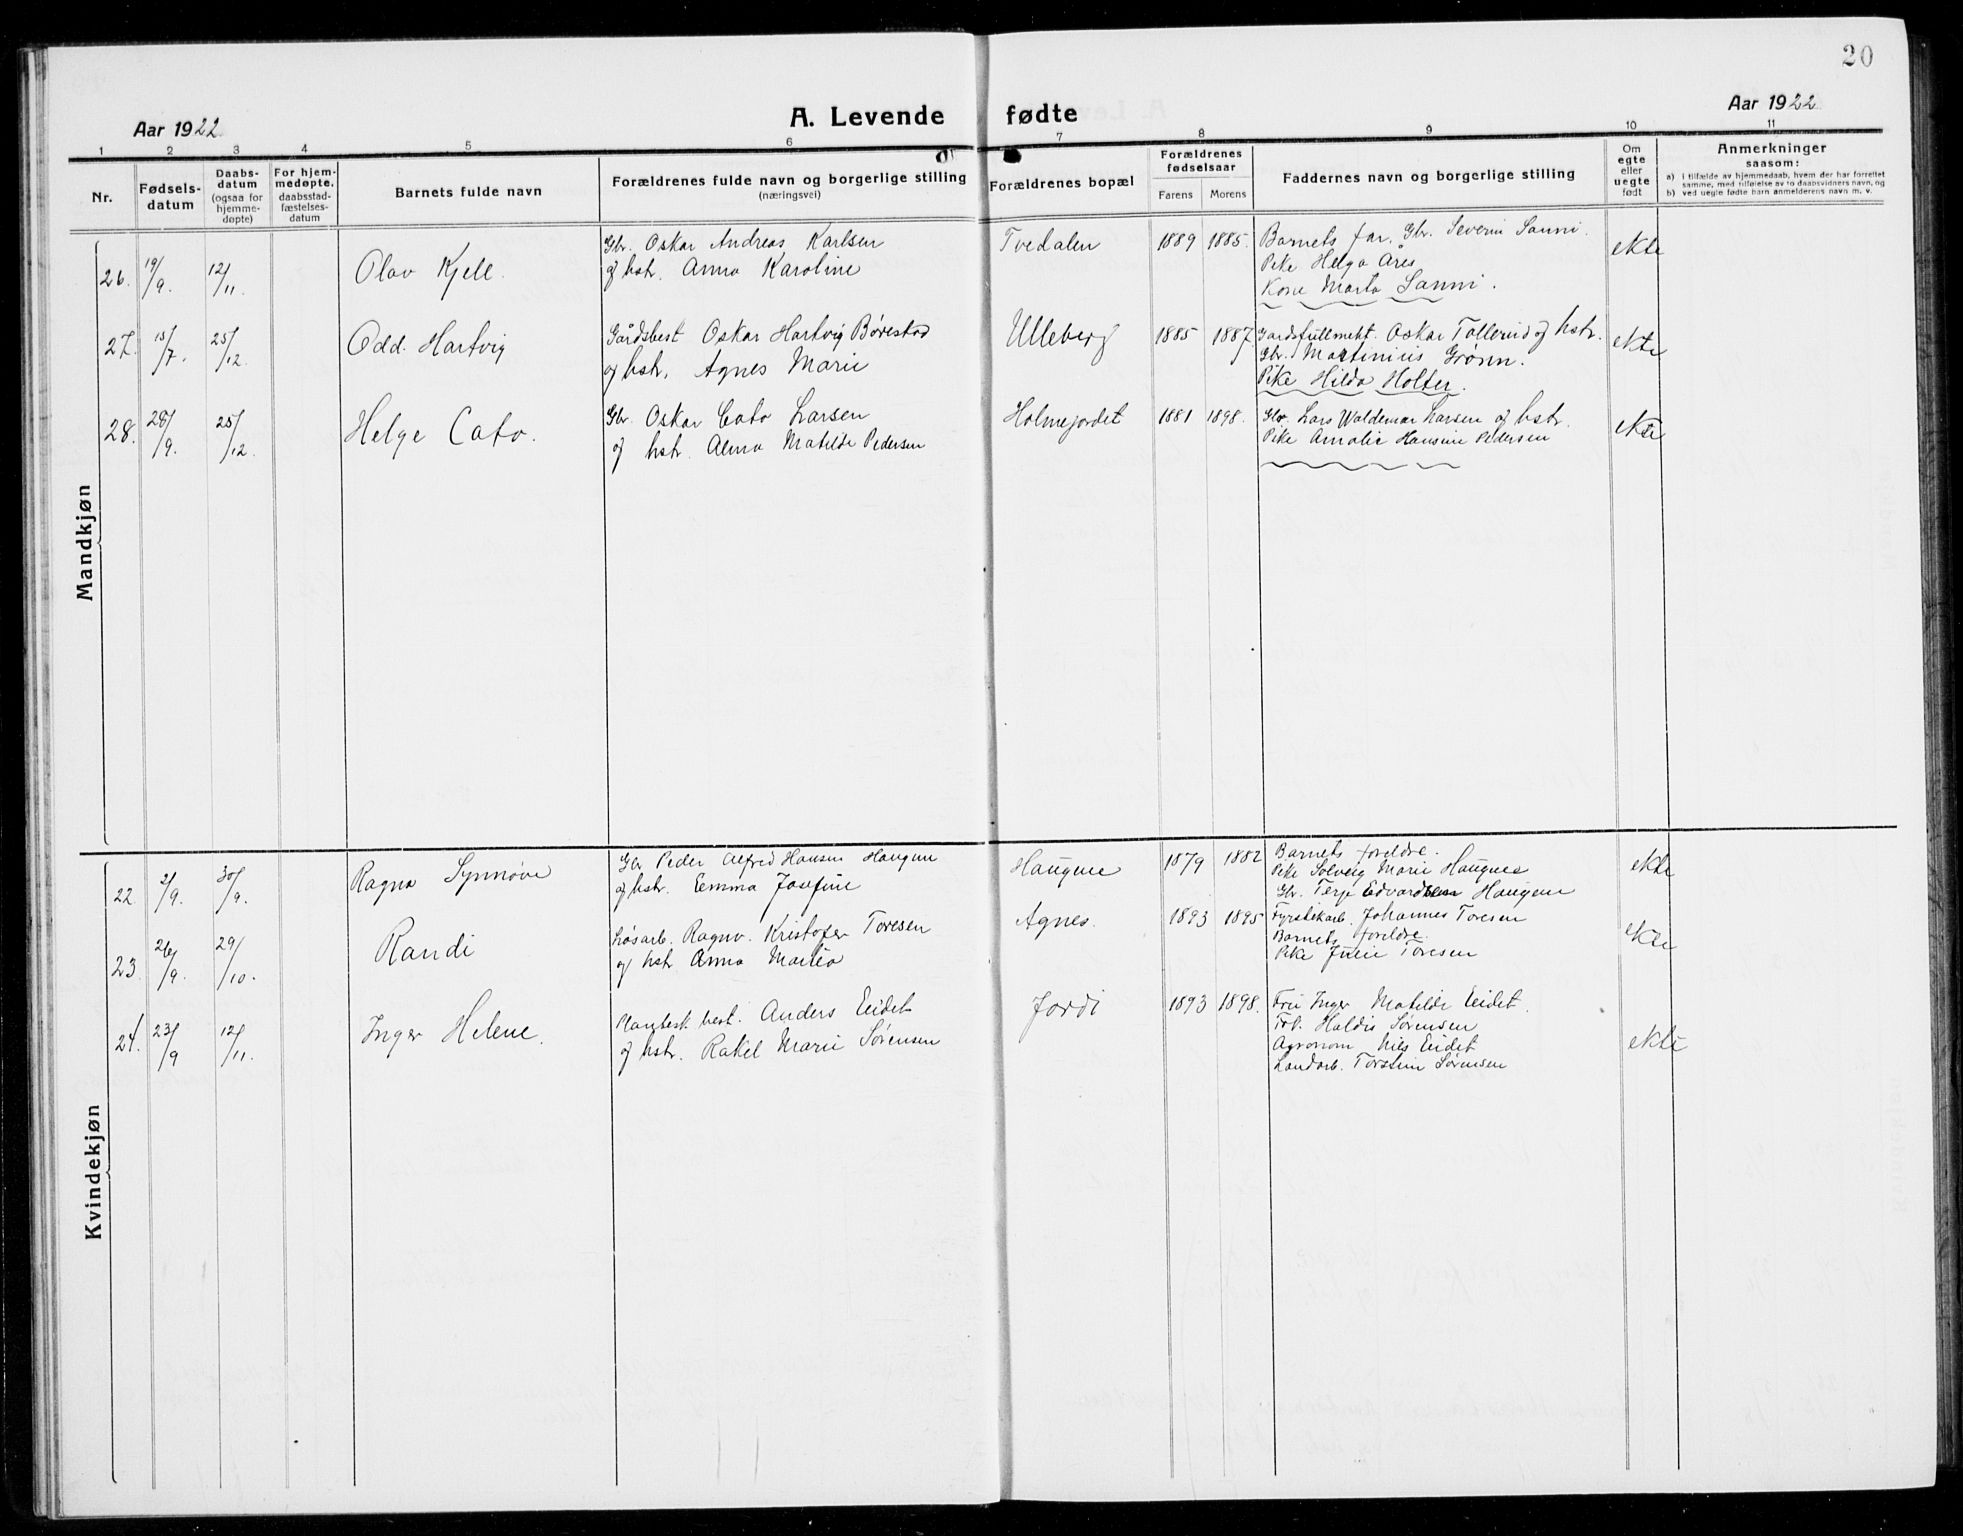 20
Aar 1922
A. Levende fødte
Aar 1922
1 2 3 4 5 6 7 8 9 10 11
Nr.
Fødsels-
datum
Daabs-
datum
(ogsaa for
hjemme-
døpte)
For hjem-
medøpte,
daabsstad-
fæstelses-
datum
Barnets fulde navn
Forældrenes fulde navn og borgerlige stilling
(næringsvei)
Forældrenes bopæl
Forældrenes
fødselsaar
Farens Morens
Faddernes navn og borgerlige stilling
Om
egte
eller
uegte
født
Anmerkninger
saasom:
a) i tilfælde av hjemmedaab, hvem der har forrettet
samme, med tilføielse av to daabsvidners navn, og
b) ved uegte fødte barn anmelderens navn m. v.
Mandkjøn
26. 19/9. 12/11. Olav Kjell.
Gbr. Oskar Andreas Karlsen
og hstr. Anna Karoline
Tvedalen 1889 1885.
Barnets far. Gbr. Severin Sanni.
Pike Helga Åres
Kone Marta Sanni.
ekte
27. 15/7. 25/12. Odd Hartvig
Gårdsbest Oskar Hartvig Børestad
og hstr. Agnes Marie
Ulleberg 1885 1887
Gardsfullmekt. Oskar Tollerud og hstr.
Gbr. Martinius Grønn.
Pike Hilda Holter.
ekte
28. 28/9. 25/12. Helge Cato.
Gbr. Oskar Cato Larsen
og hstr. Alma Matilde Pedersen
Holmejordet 1881 1898.
Gbr. Lars Waldemar Larsen og hstr.
Pike Amalie Hansine Pedersen
ekte
Kvindekjøn
22 2/9. 30/9. Ragna Synnøve
Gbr Peder Alfred Hansen Haugene
og hstr. Emma Josefine
Haugene 1879 1882
Barnets foreldre.
Pike Solveig Marie Haugnes
Gbr. Terje Edvardsen Haugene
ekte
23. 26/9. 29/10. Randi
Løsarb. Ragnv. Kristofer Toresen
og hstr Anna Maria
Agnes. 1893 1895
Fyrstikarb. Johannes Toresen
Barnets foreldre.
Pike Julie Toresen
ekte
24. 23/9 12/11. Inger Helene.
best. Anders Eidet
og hstr. Rakel Marie Sørensen
Jordi 1893 1898.
Fru Inger Matilde Eidet.
Frk. Haldis Sørensen
Agronom Nils Eidet
Landarb. Torstein Sørensen
ekte